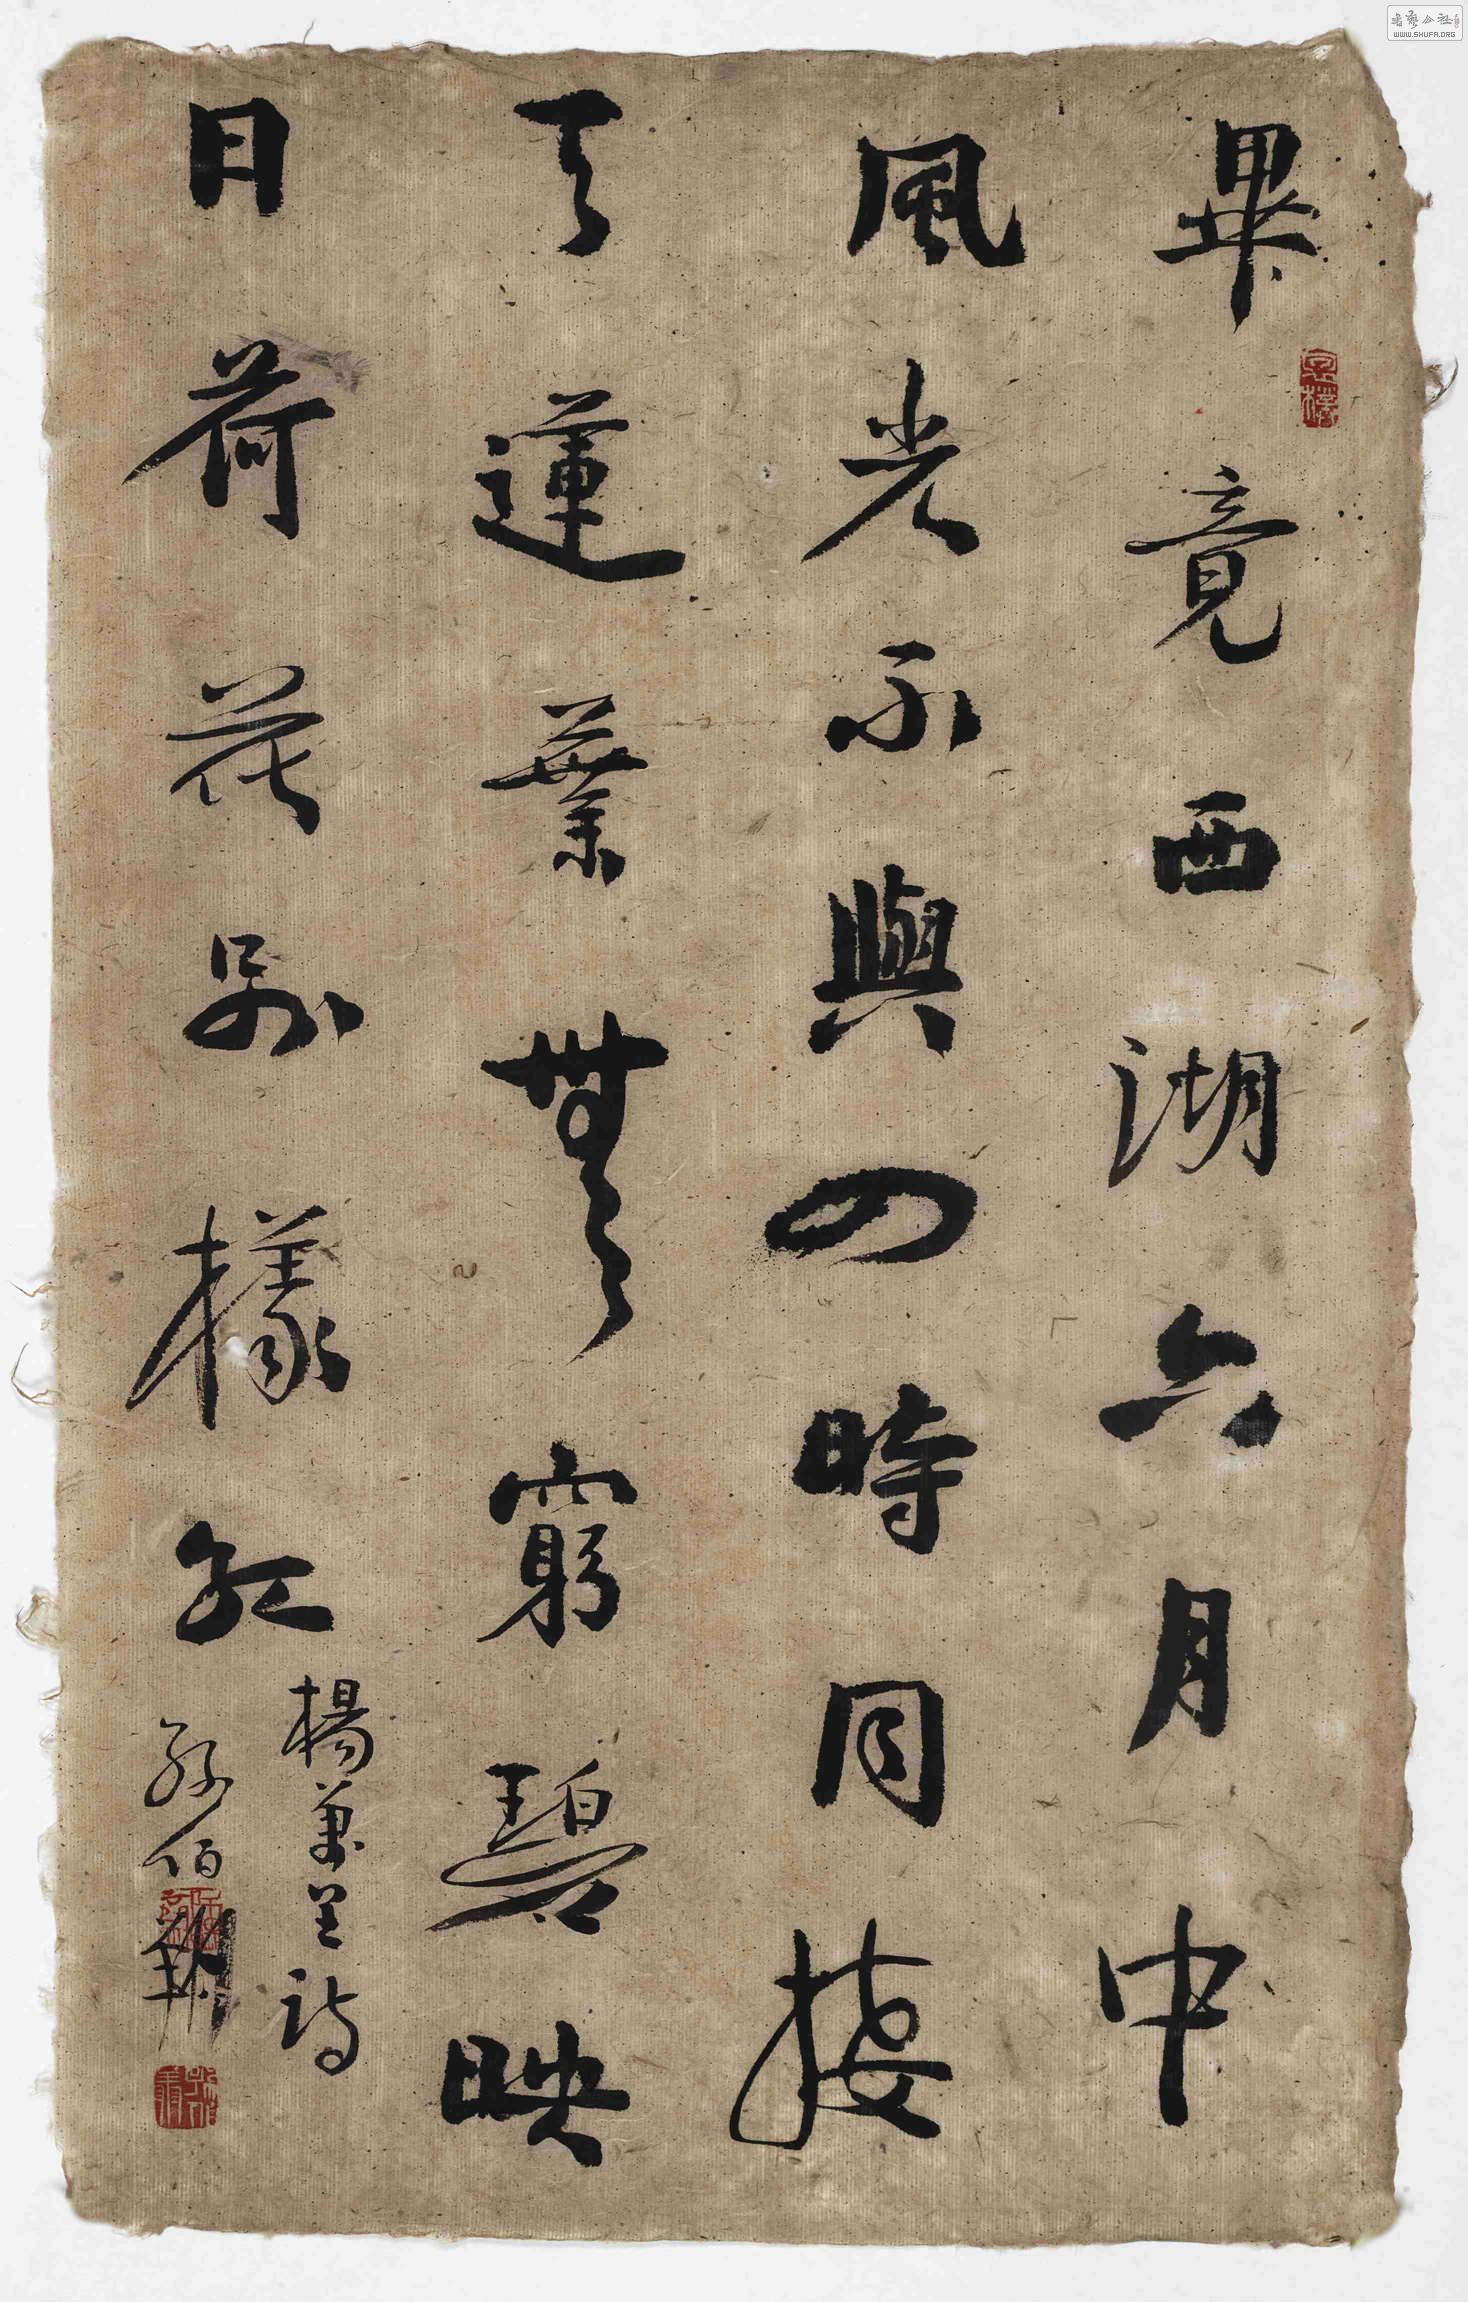 畢竟西湖六月中
風光不與四時同接
天蓮葉無窮碧映
日荷花別樣紅
楊萬里詩
孫伯翔
書藝公社
WWW.SHUFA.ORG